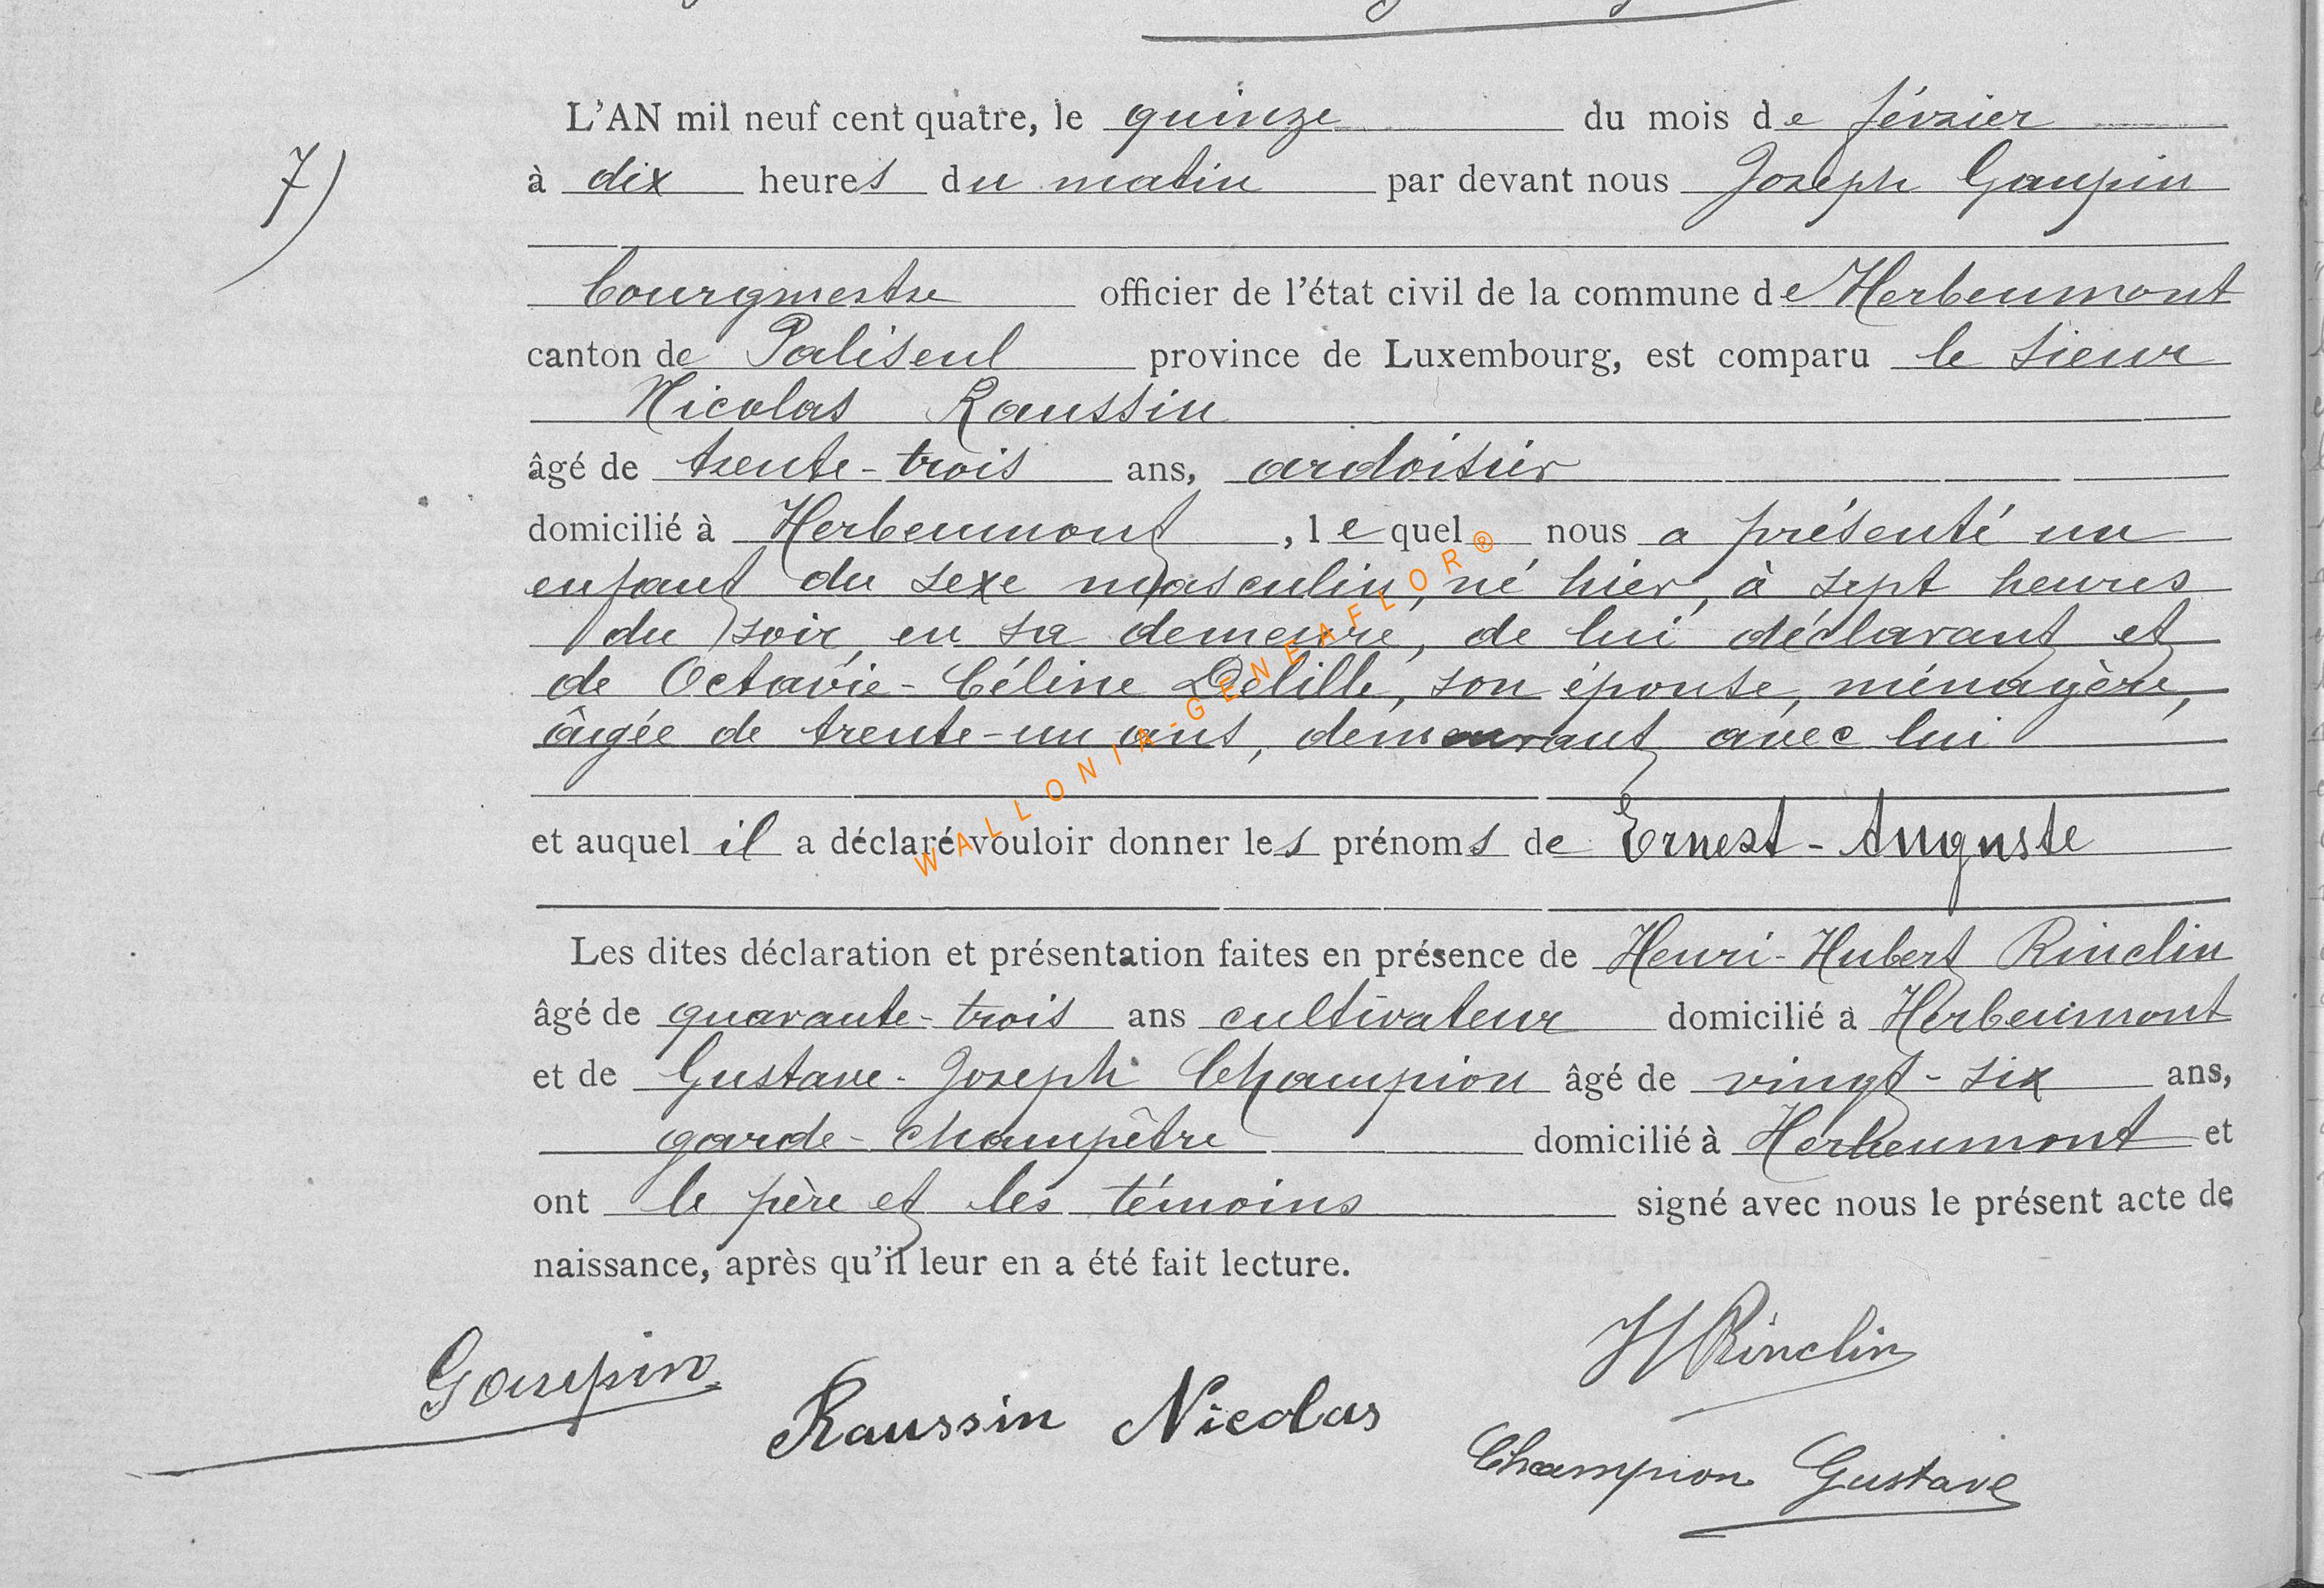 L'AN mil neuf cent quatre, le quinze du mois de février
7)
à dix heures du matin par devant nous Joseph Gaupin
bourgmestre officier de l'état civil de la commune de Herbeumont
canton de Paliseul province de Luxembourg, est comparu le sieur
Nicolas Raussin
âgé de trente-trois ans, ardoisier
domicilié à Herbeumont, lequel nous a présenté un
enfant du sexe masculin, né hier, à sept heures
du soir, en sa demeure, de lui déclarant et
de Octavie-Céline Delille, son épouse, ménagère,
âgée de trente-un ans, demeurant avec lui
et auquel il a déclaré vouloir donner les prénoms de Ernest-Auguste
WALLONIA-GENEAFLOR®
Les dites déclaration et présentation faites en présence de Henri-Hubert Rinclin
âgé de quarante-trois ans cultivateur domicilié à Herbeumont
et de Gustave-Joseph Champion âgé de vingt-six ans,
garde-champêtre domicilié à Herbeumont et
ont le père et les témoins signé avec nous le présent acte de
naissance, après qu'il leur en a été fait lecture.
HRinclin
Gaupin
Raussin Nicolas
Champion Gustave